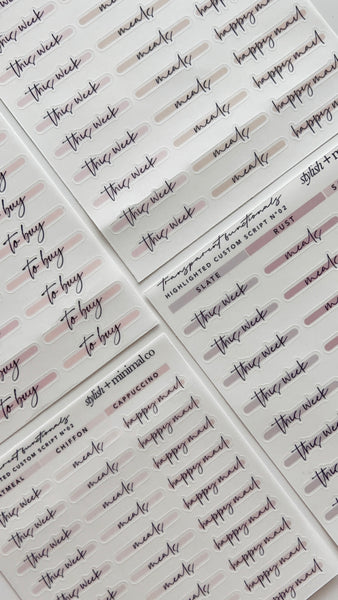 this week meals happy mail
this week meals happy mail
this week meals happy mail
this week meals happy mail
this week meals
this week meals
this week
to buy
to buy to buy
to buy to buy
to buy to buy
to buy to buy
to buy
transparent functionals
HIGHLIGHTED CUSTOM SCRIPT Nº02
stylish + minimal co
SLATE RUST
this week meals
this week meals
this week meals
this week
this week
this week
this week
stylish + minimal co
CUSTOM SCRIPT Nº02
CHIFFON CAPPUCCINO
this week meals happy mail
this week meals happy mail
this week meals happy mail
this week meals happy mail
meals happy mail
meals happy mail
happy mail